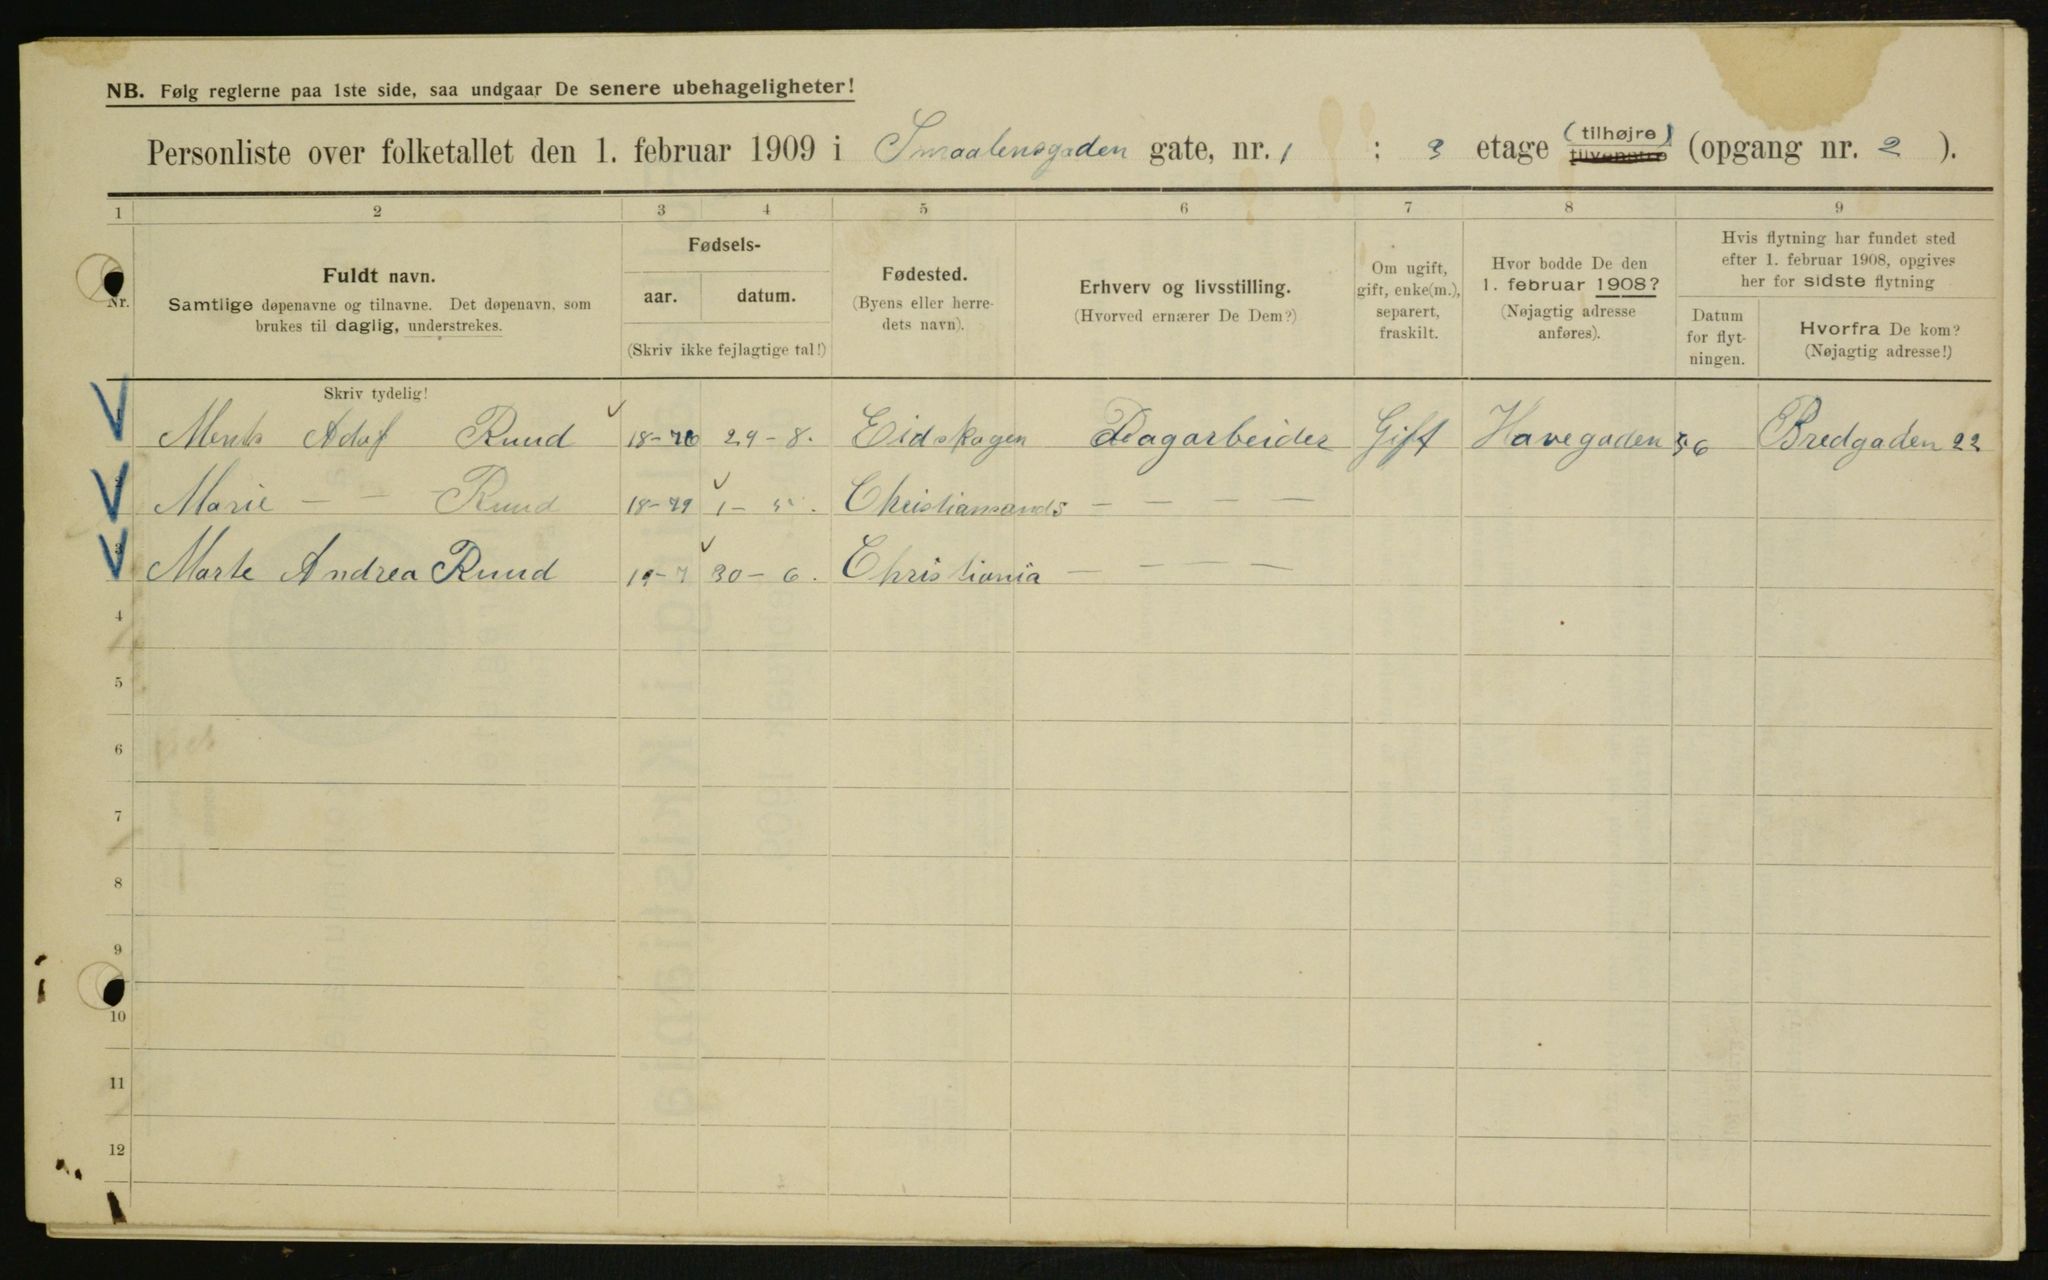 NB. Følg reglerne paa 1ste side, saa undgaar De senere ubehageligheter!
Personliste over folketallet den 1. februar 1909 i Smaalensgaden gate, nr. 1 : 3 etage (tilhøjre) tilvenstre (opgang nr. 2 ).
1 2 3 4 5 6 7 8 9
Nr.
Fuldt navn.
Samtlige døpenavne og tilnavne. Det døpenavn, som
brukes til daglig, understrekes.
Fødsels-
aar. datum.
(Skriv ikke fejlagtige tal!)
Fødested.
(Byens eller herre-
dets navn).
Erhverv og livsstilling.
(Hvorved ernærer De Dem?)
Om ugift,
gift, enke(m.),
separert,
fraskilt.
Hvor bodde De den
1. februar 1908?
(Nøjagtig adresse
anføres).
Hvis flytning har fundet sted
efter 1. februar 1908, opgives
her for sidste flytning
Datum
for flyt-
ningen.
Hvorfra De kom?
(Nøjagtig adresse!)
Skriv tydelig!
Adolf Ruud 29-8. Eidskogen Dagarbeider Gift Havegaden 56 Bredgaden 22
2 Marie - - Ruud 18-79 1- Christiansands - - - -
3 Marte Andrea Ruud 19-7 30-6. Christiania - - - -
4
5
6
7
8
9
10
11
12